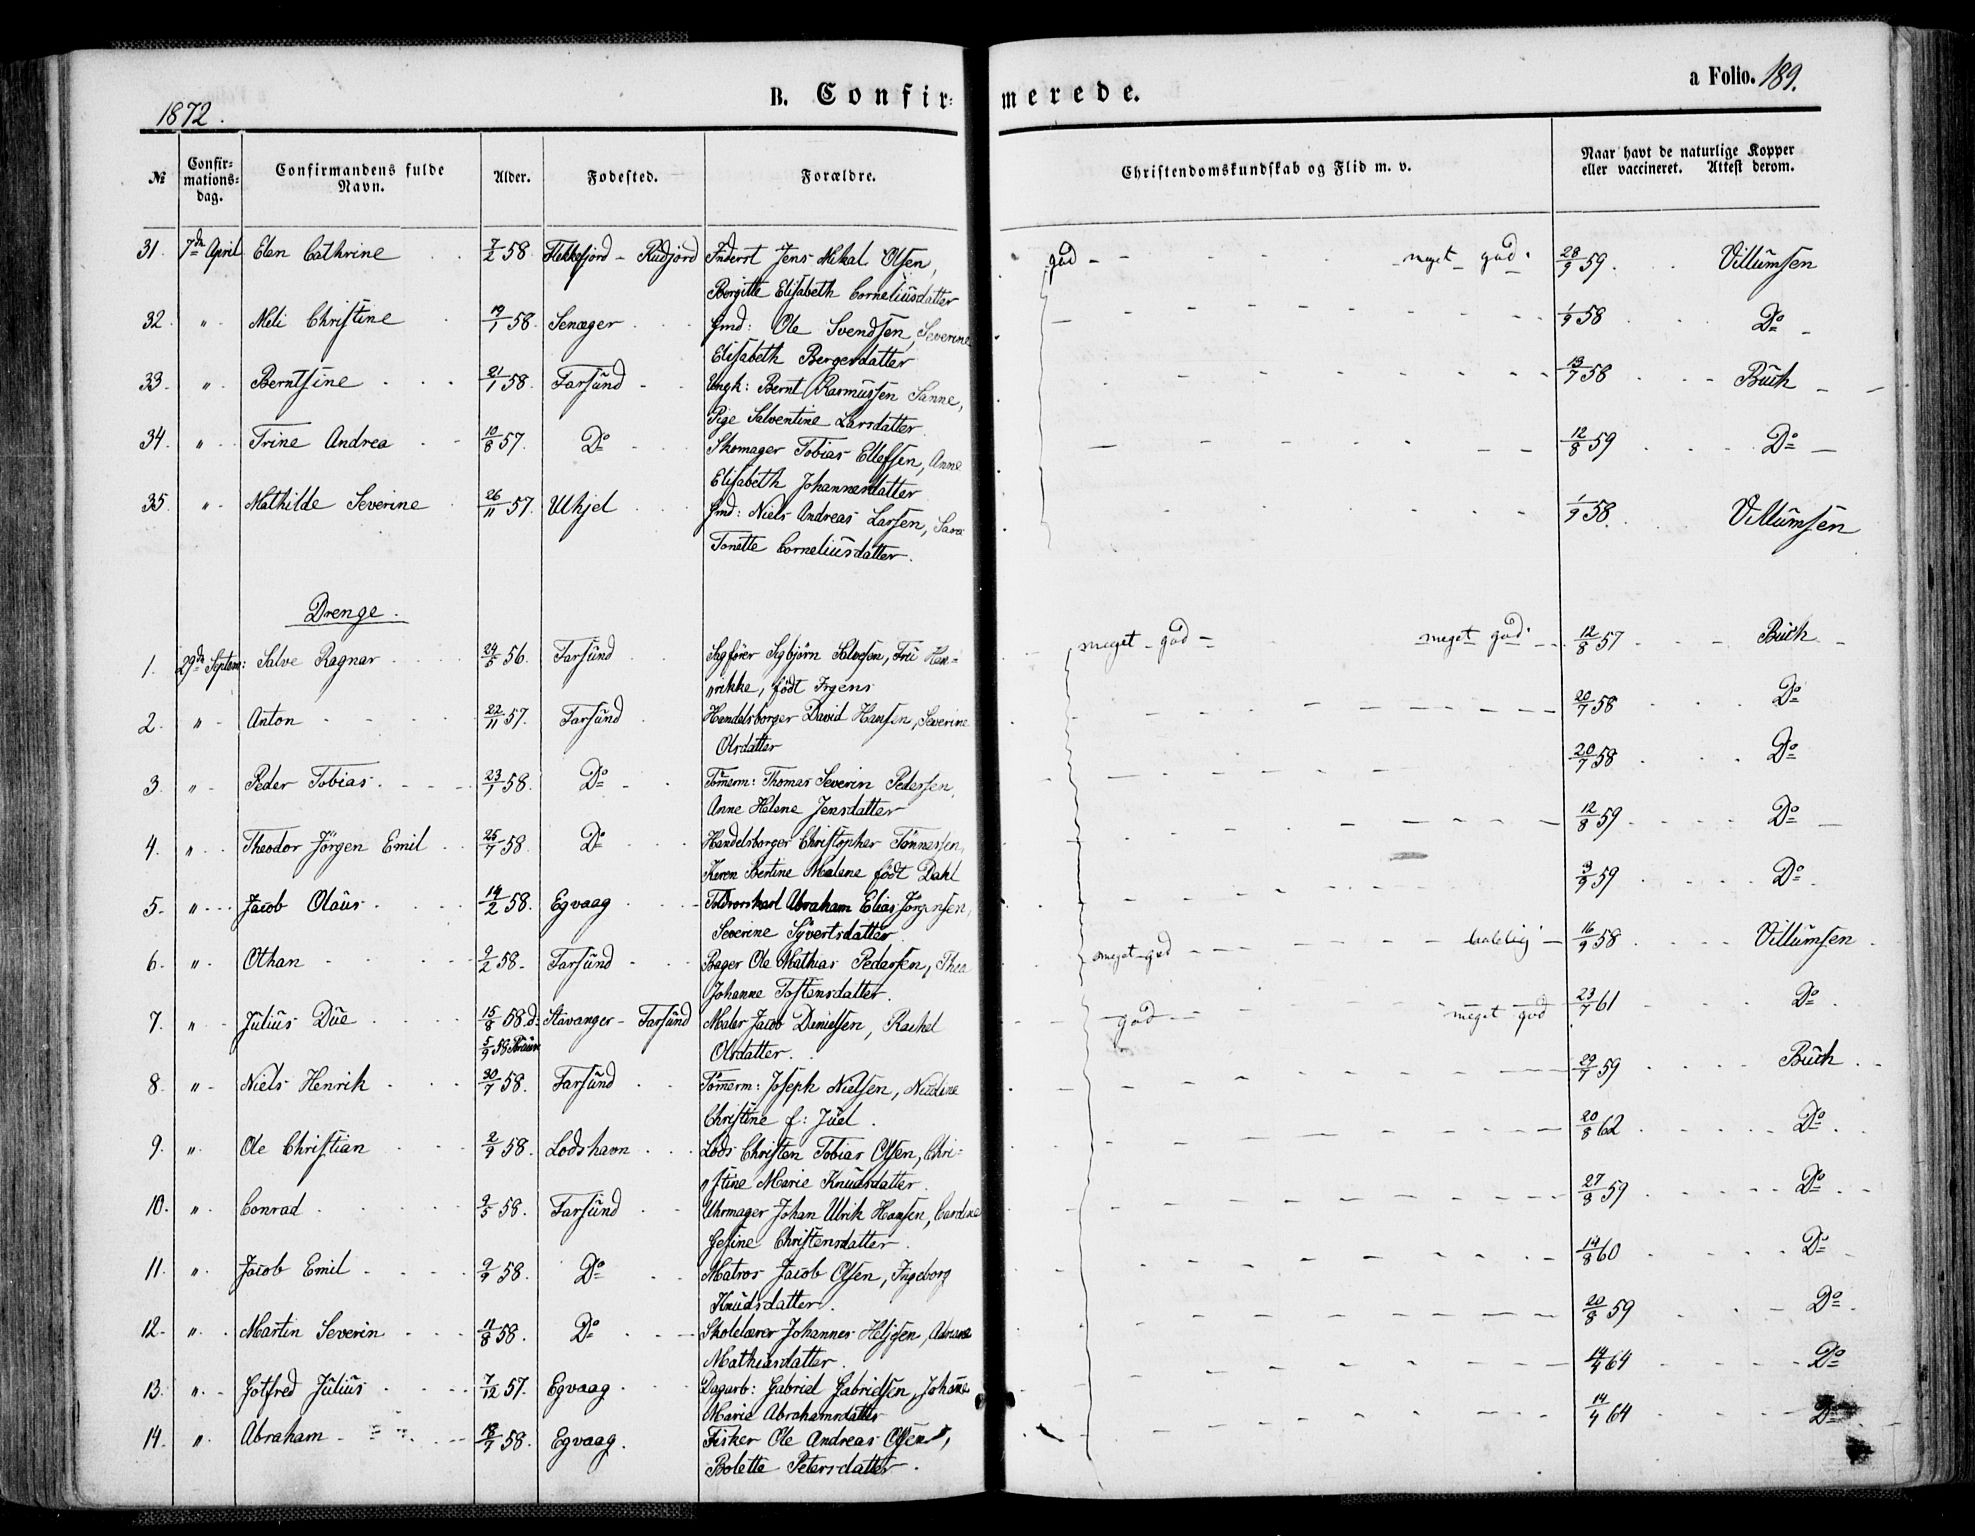 1872.
B. Confir-
merede.
a Folio. 189.
№ Confirmations-dag. Confirmandens fulde Navn. Alder. Fødested. Forældre. Christendomskundskab og Flid m. v. Naar havt de naturlige Kopper eller vaccineret. Attest derom.
31. 7de April Elen Cathrine 7/2 58. Flekkefjord - Jens Mikal Olsen, god - meget god. 28/9 59. Villumsen
Borgitte Elisabeth Corneliusdatter
32. " Meli Christine 19/1 58. Senæger Gmd: Ole Svendsen, Severine 1/9 58 Do
Elisabeth Bergersdatter
33. " Berntsine 21/1 58. Farsund Ungk: Bernt Rasmussen Sanne, 13/7 58 Buch
Pige Salventine Larsdatter
34. " Trine Andrea 10/8 57. Do Skomager Tobias Ellefsen, Anne 12/8 59 Do
Elisabeth Johannesdatter
35. " Mathilde Severine 26/11 57. Ulhjel Gmd: Niels Andreas Larsen, Sara 1/9 58. Villumsen
Tonette Corneliusdatter.
Drenge.
1. 29de Septem: Salve Ragnar 24/5 56. Farsund Sagfører Sigbjørn Salvesen, Fru Hen- meget god - meget god. 12/8 57 Buch
rikke, født Irgens
2. " Anton 22/11 57. Farsund Handelsborger David Hansen, Severine 20/7 58 Do
Olsdatter
3. " Peder Tobias. 23/1 58. Do Tömerm: Thomas Severin Pedersen, 20/7 58. Do
Anne Helene Jensdatter
4. " Theodor Jörgen Emil 25/7 58. Do Handelsborger Christopher Tönnessen, 12/8 59 Do
Karen Bertine Malene född Dahl
5. " Jacob Olaus 14/2 58. Egvaag Toldrorskarl Abraham Elias Jörgensen, 3/9 59 Do
Severine Syvertsdatter
6. " Othan 9/2 58. Farsund Bager Ole Mathias Pedersen, Thea meget god taalelig 16/9 58 Villumsen
Johanne Tostensdatter.
7. " Julius Due 15/8 58. d: Stavanger - Farsund Maler Jacob Danielsen, Rachel god meget god 23/7 61 Do
5/9 58 Olsdatter.
8. " Niels Henrik 30/7 58. Farsund Tömerm: Joseph Nielsen, 29/7 59 Buch
Christine f: Juel.
9. " Ole Christian 2/9 58. Lodshavn Lods Christen Tobias Olsen, Chri- 20/8 62 Do
stine Marie Knudsdatter.
10. " Conrad 9/5 58. Farsund Uhrmager Johan Ulrik Hansen, 27/8 59 Do
Gesine Christensdatter.
11. " Jacob Emil 9/9 58. Do Matros Jacob Olsen, Ingeborg 14/8 60 Do
Knudsdatter.
12. " Martin Severin 11/8 58. Do Skolelærer Johannes Heljesen, 20/8 59 Do
Mathiasdatter.
13. " Gotfred Julius 7/12 57. Egvaag Dagarb: Gabriel Gabrielsen, Johanne 14/4 64 Do
Marie Abrahamsdatter
14. " Abraham 18/7 58. Egvaag. Fisker Ole Andreas Olsen, 14/4 64 Do
Bolette Petersdatter.